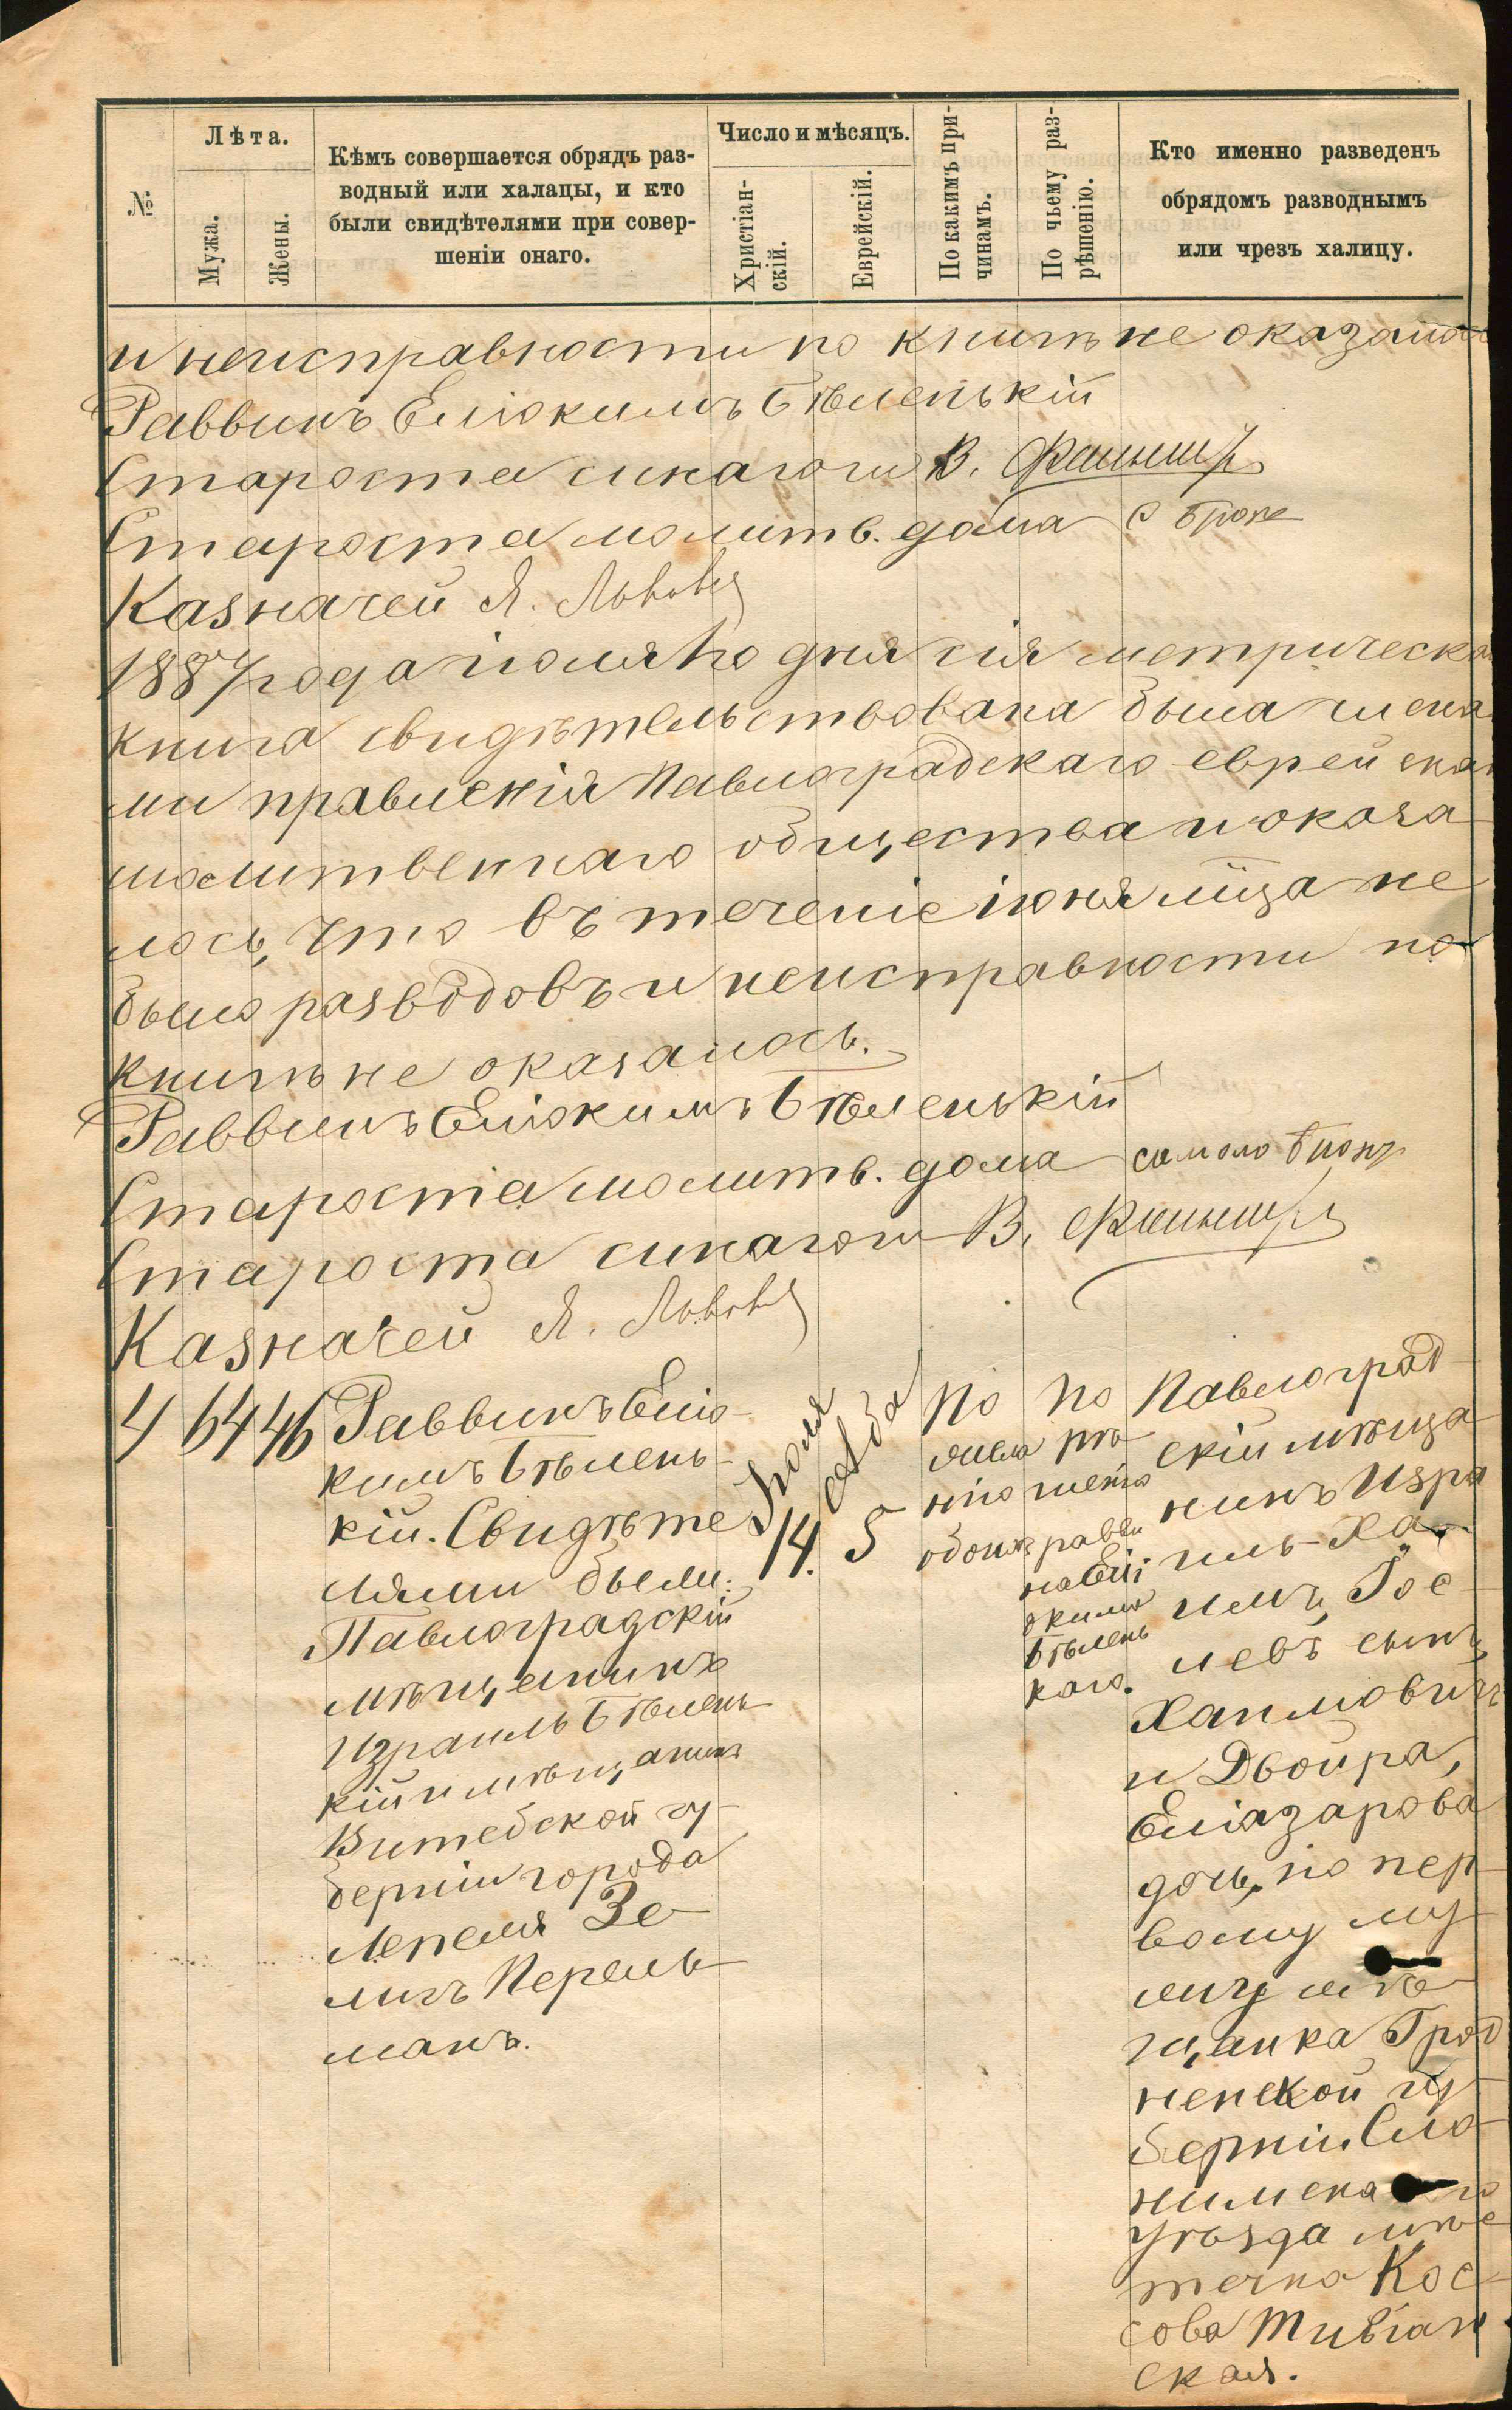 №
Лѣта.
Мужа.
Жены.
Кѣмъ совершается обрядъ раз-
водный или халацы, и кто
были свидѣтелями при совер-
шеніи онаго.
Число и мѣсяцъ.
Христіан-
скій.
Еврейскій.
По какимъ при-
чинамъ.
По чьему раз-
рѣшенію.
Кто именно разведенъ
обрядомъ разводнымъ
или чрезъ халицу.
и неисправности по книгѣ не оказалось
Раввинъ Еліокимъ Бѣленькій
Староста синагоги В.
Староста молитв. дома С
Казначей Я.
1887 года іюля 1го дня сія метрическая
книга свидѣтельствована была члена
ми правленія Павлоградскаго еврейскаго
молитвеннаго общества и оказа
лось, что въ теченіе іюня мѣца не
было разводовъ и неисправности по
книгѣ не оказалось.
Раввинъ Еліокимъ Бѣленькій
Староста молитв. дома
Староста синагоги В.
Казначей Я.
4 64 46
Раввинъ Еліо-
кимъ Бѣлень-
кій. Свидѣте
лями были:
Павлоградскій
мѣщанинъ
Израиль Бѣлень
кій и мѣщанинъ
Витебской гу-
берніи города
Лепеля Зе-
ликъ Перель-
манъ.
Іюля
14.
5
По
желанію
обоихъ
По
рѣ
шенію
равви
на Елі
окима
Бѣлень
каго.
Павлоград
скій мѣща
нинъ Изра
иль-Ха-
имъ, Іос-
левъ сынъ
Хаимовичъ
и Двойра,
Еліазарова
дочь, по пер
вому му
жу мѣ-
щанка Грод
ненской гу-
берніи Сло-
нимскаго
уѣзда мѣс
течка Кос-
сова
ская.